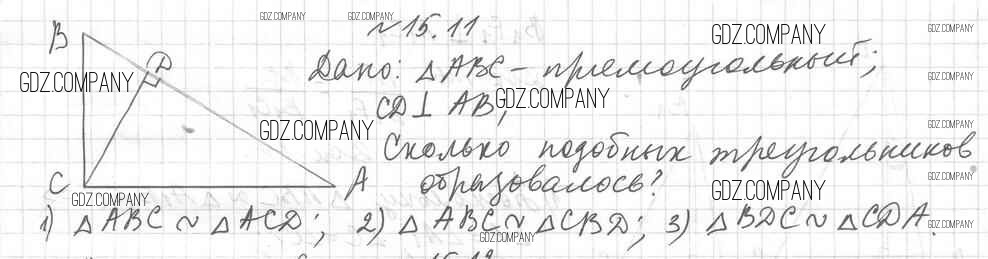 GDZ.COMPANY GDZ.COMPANY № 15.11 GDZ.COMPANY GDZ.COMPANY
B
D
GDZ.COMPANY
Дано: △ABC - прямоугольный; GDZ.COMPANY
CD⊥AB, GDZ.COMPANY
GDZ.COMPANY GDZ.COMPANY
Сколько подобных треугольников GDZ.COMPANY
C A образовалось? GDZ.COMPANY GDZ.COMPANY
GDZ.COMPANY
1) △ABC ~ △ACD; 2) △ABC ~ △CBD; 3) △BDC ~ △CDA.
GDZ.COMPANY GDZ.COMPANY